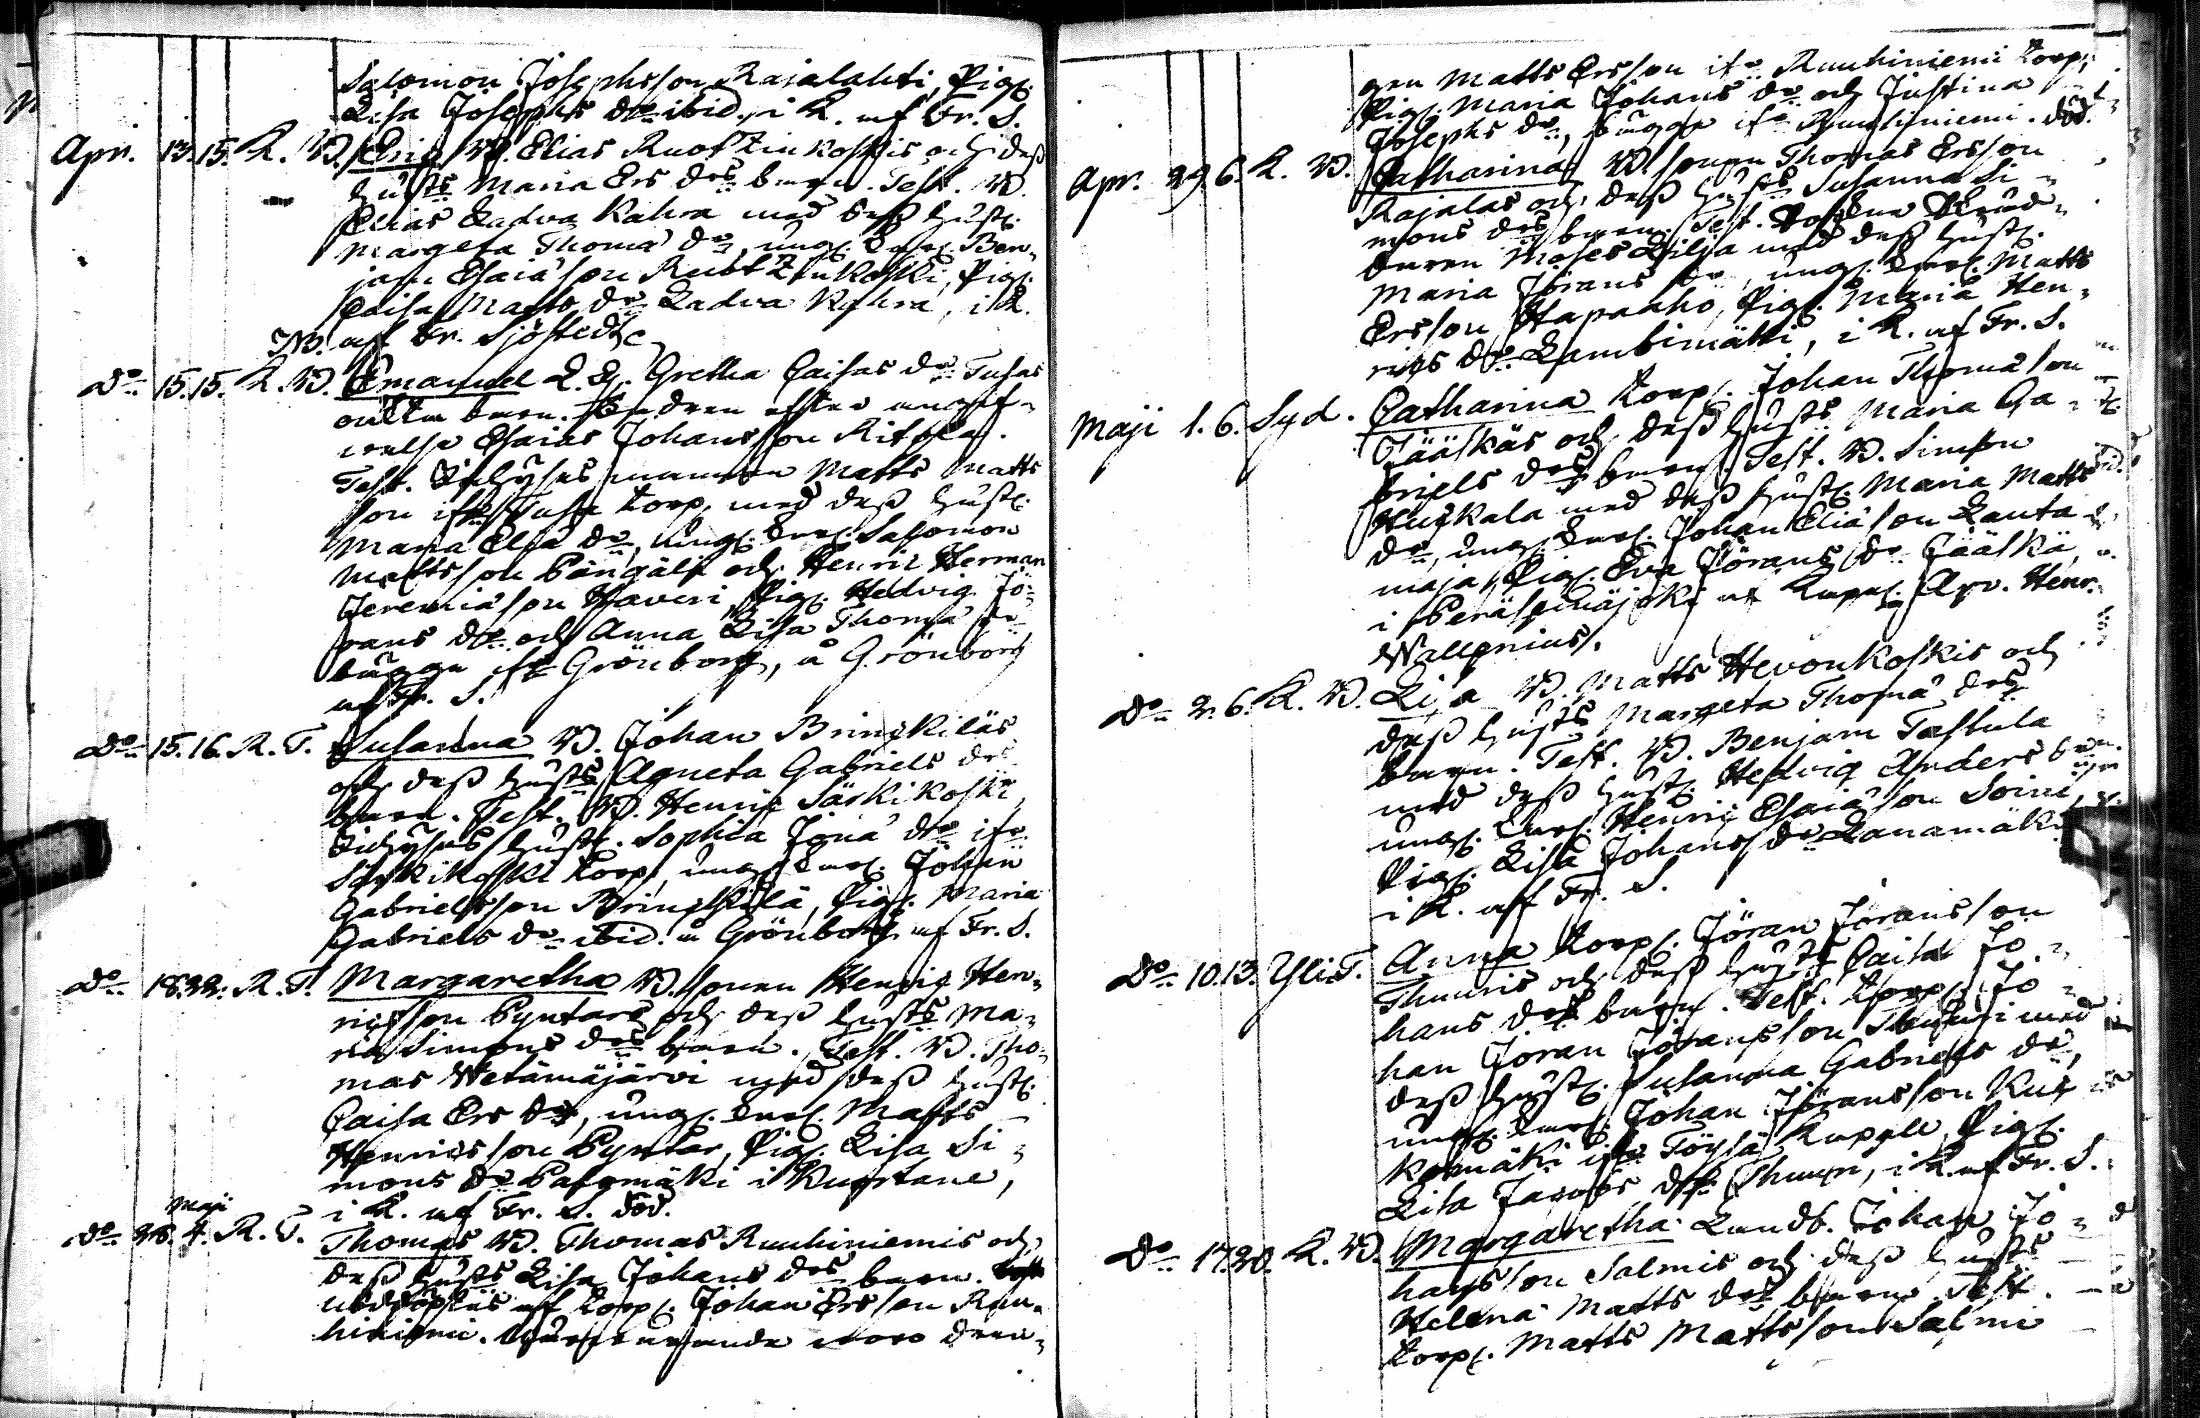 Salomon Josephsson Rajalahti, Pig.
Lisa Josephs dr ibid, i K. af Fr. S.
Apr. 13. 15. K. W. Eric W. Elias Ruotzinkoskis och deß
hust: Maria Ers drs barn. Test. W.
Elias Ladva Kahra med deß hust.
Margeta Thomæ dr, ung. dre. Ben-
jam Esaiæson Ruotzinkoski, Pig.
Caisa Matts dr Ladva Kahra, i K.
NB. af Fr. Sjöstedt
Do 15. 15. K. W. Emanuel L. Q. Gretha Caisas dr Tusas
oäkta barn. Fadren efter
Esaias Johansson Ritola.
Test. Inhyses mannen Matts Matts
son ifr Tusa torp, med deß hust.
Maria Eliæ dr, ung. dre. Salomon
Mattsson Pångåls och Henric Herman
Jeremiæson Haveri, Pig. Hedvig Jö-
rans dr och Anna Lisa Thomæ dr
bägge ifr Grönborg, å Grönborg
af Fr. S.
Do 15. 16. R. T. Susanna W. Johan Brinckiläs
och deß hust: Agneta Gabriels drs
barn. Test. W. Henric Särkikoski,
Inhyses hust. Sophia Jonæ dr ifr
Särkikoski torp, ung. dre. Johan
Gabrielsson Brinckilä, Pig. Maria
Gabriels dr ibid. å Grönborg af Fr. S.
Do 18. 22. R. T. Margaretha W. sonen Henric Hen-
ricsson Pyntars och deß hust: Ma-
ria Simons drs barn. Test. W. Tho-
mas Wetämäjärvi med deß hust.
Caisa Ers dr, ung. dre. Matts
Henricsson Pyntar, Pig. Lisa Si-
mons dr i Kuortane,
i K. af Fr. S. död.
Maji
Do 28. 4. R. T. Thomas W. Thomas Ruuhiniemis och
deß hust: Lisa Johans drs barn.
nöddöptes af torp. Johan Ersson Ruu-
hiniemi. Närvarande woro dren-
gen Matts Ersson ifr Ruuhiniemi torp,
Pig. Maria Johans dr och Justina
Josephs dr, bägge ifr Ruuhiniemi. död.
Apr. 29. 6. K. W. Catharina W. sonen Thomas Ersson
Rajalas och deß hust: Susanna Si-
mons drs barn. Test.
Moses Lilja med deß hust.
Maria Jörans dr, ung. dre. Matts
Ersson Haapaaho, Pig. Maria Hen-
rics dr Lambimäki, i K. af Fr. S.
Maji 1. 6. Syd. Catharina torp. Johan Thomæson
Jääskäs och deß hust: Maria Ga-
briels drs barn. Test. W. Simon
Kuckala med deß hust. Maria Matts
dr, ung. dre. Johan Eliæson Lauta
maja, Pig. Eva Jörans dr Jääskä,
i Peräseinäjoki af Kapel. Apr. Henr.
Wallenius.
Do 2. 6. K. W. Lisa W. Matts Hevonkoskis och
deß hust: Margeta Thomæ drs
barn. Test. W. Benjam Tastula
med deß hust. Hedvig Anders dr,
ung. dre. Henric Esaiæson Soini,
Pig. Lisa Johans dr Lanamäki
i K. af Fr. S.
Do 10. 13. Yli T. Anna torp. Jöran Jöransson
Thuuris och deß hust: Caisa Jo-
hans drs barn. Test. torp. Jo-
han Jöran Jöransson Thuuri med
deß hust. Susanna Gabriels dr,
ung. dre. Johan Jöransson Kuc
komäki ifr Töysä Kapell, Pig.
Lisa Jacobs dr Thuuri, i K. af Fr. S.
Do 17. 20. K. W. Margaretha Landb. Johan Jo-
hansson Salmis och deß hust:
Helena Matts drs barn. Test.
torp. Matts Mattsson Salmi